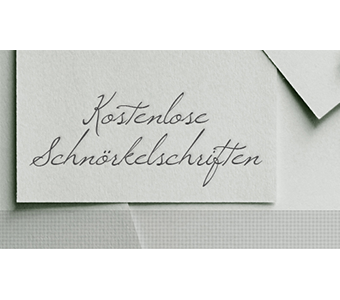 Kostenlose
Schnörkelschriften